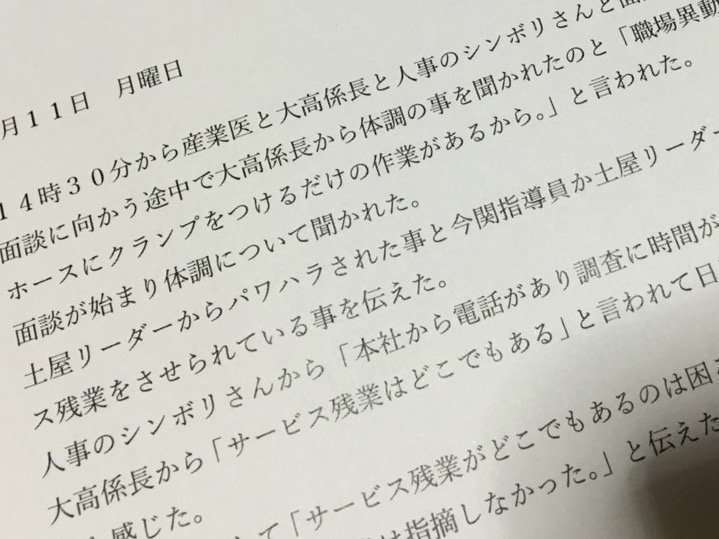 月１１日　月曜日
１４時３０分から産業医と大高係長と人事のシンボリさんと面
面談に向かう途中で大高係長から体調の事を聞かれたのと「職場異動
ホースにクランプをつけるだけの作業があるから。」と言われた。
面談が始まり体調について聞かれた。
土屋リーダーからパワハラされた事と今関指導員か土屋リーダー
ス残業をさせられている事を伝えた。
人事のシンボリさんから「本社から電話があり調査に時間が
大高係長から「サービス残業はどこでもある」と言われて日
感じた。
て「サービス残業がどこでもあるのは困
は指摘しなかった。」と伝えた